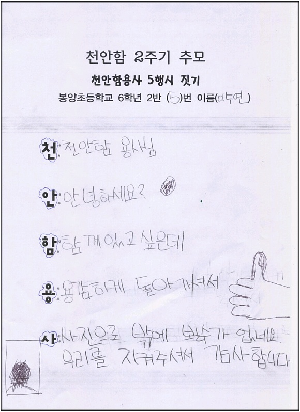 천안함 2주기 추모
천안함용사 5행시 짓기
봉양초등학교 6학년 2반 ( )번 이름( )
천:천안함 용사님
안:안녕하세요?
함:함께 있고 싶은데
용:용감하게 돌아가셔서
사:사진으로 밖에 볼수가 없네요
우리를 지켜주셔서 감사합니다